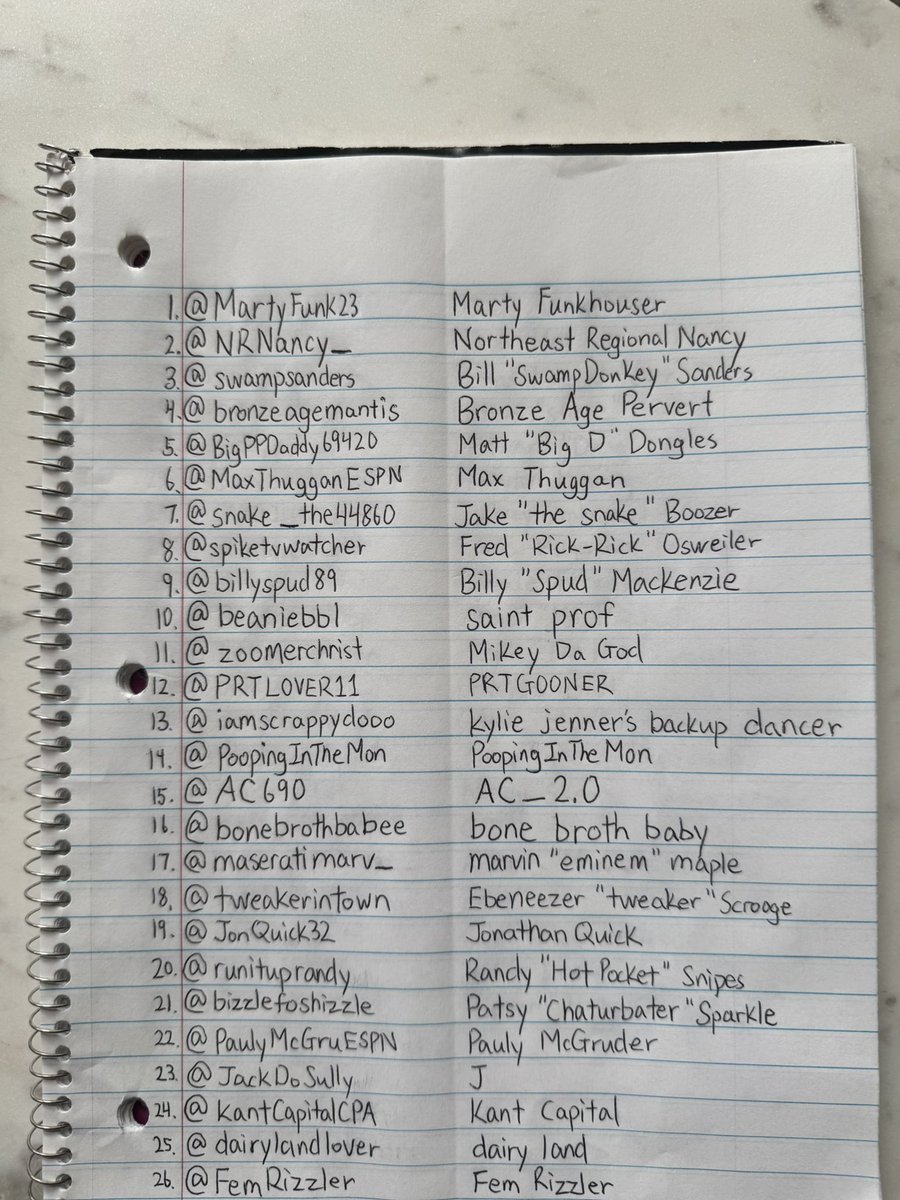 1. @MartyFunk23 Marty Funkhouser
2. @NRNancy_ Northeast Regional Nancy
3. @swampsanders Bill "SwampDonkey" Sanders
4. @bronzeagemantis Bronze Age Pervert
5. @BigPPDaddy69420 Matt "Big D" Dongles
6. @MaxThugganESPN Max Thuggan
7. @snake_the44860 Jake "the snake" Boozer
8. @spiketvwatcher Fred "Rick-Rick" Osweiler
9. @billyspud89 Billy "Spud" Mackenzie
10. @beaniebbl saint prof
11. @zoomerchrist Mikey Da God
12. @PRTLOVER11 PRTGOONER
13. @iamscrappydooo kylie jenner's backup dancer
14. @PoopingInTheMon PoopingInTheMon
15. @AC690 AC_2.0
16. @bonebrothbabee bone broth baby
17. @maseratimarv_ marvin "eminem" maple
18. @tweakerintown Ebeneezer "tweaker" Scrooge
19. @JonQuick32 Jonathan Quick
20. @runituprandy Randy "Hot Pocket" Snipes
21. @bizzlefoshizzle Patsy "Chaturbater" Sparkle
22. @PaulyMcGruESPN Pauly McGruder
23. @JackDoSully J
24. @KantCapitalCPA Kant Capital
25. @dairylandlover dairy land
26. @FemRizzler Fem Rizzler